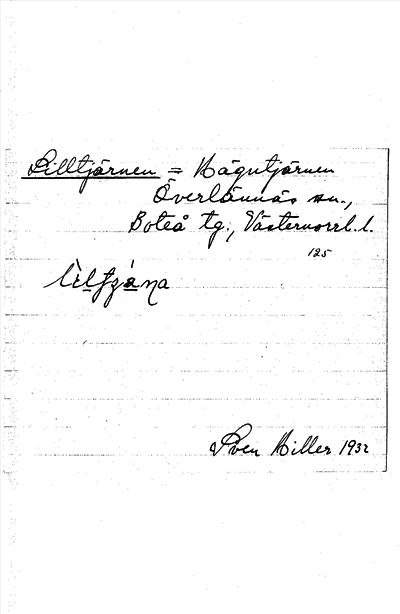 Lilltjärnen = Hägntjärnen
Överlännäs sn.,
Boteå tg., Västernorrl. l.
125
Sven Hiller 1932